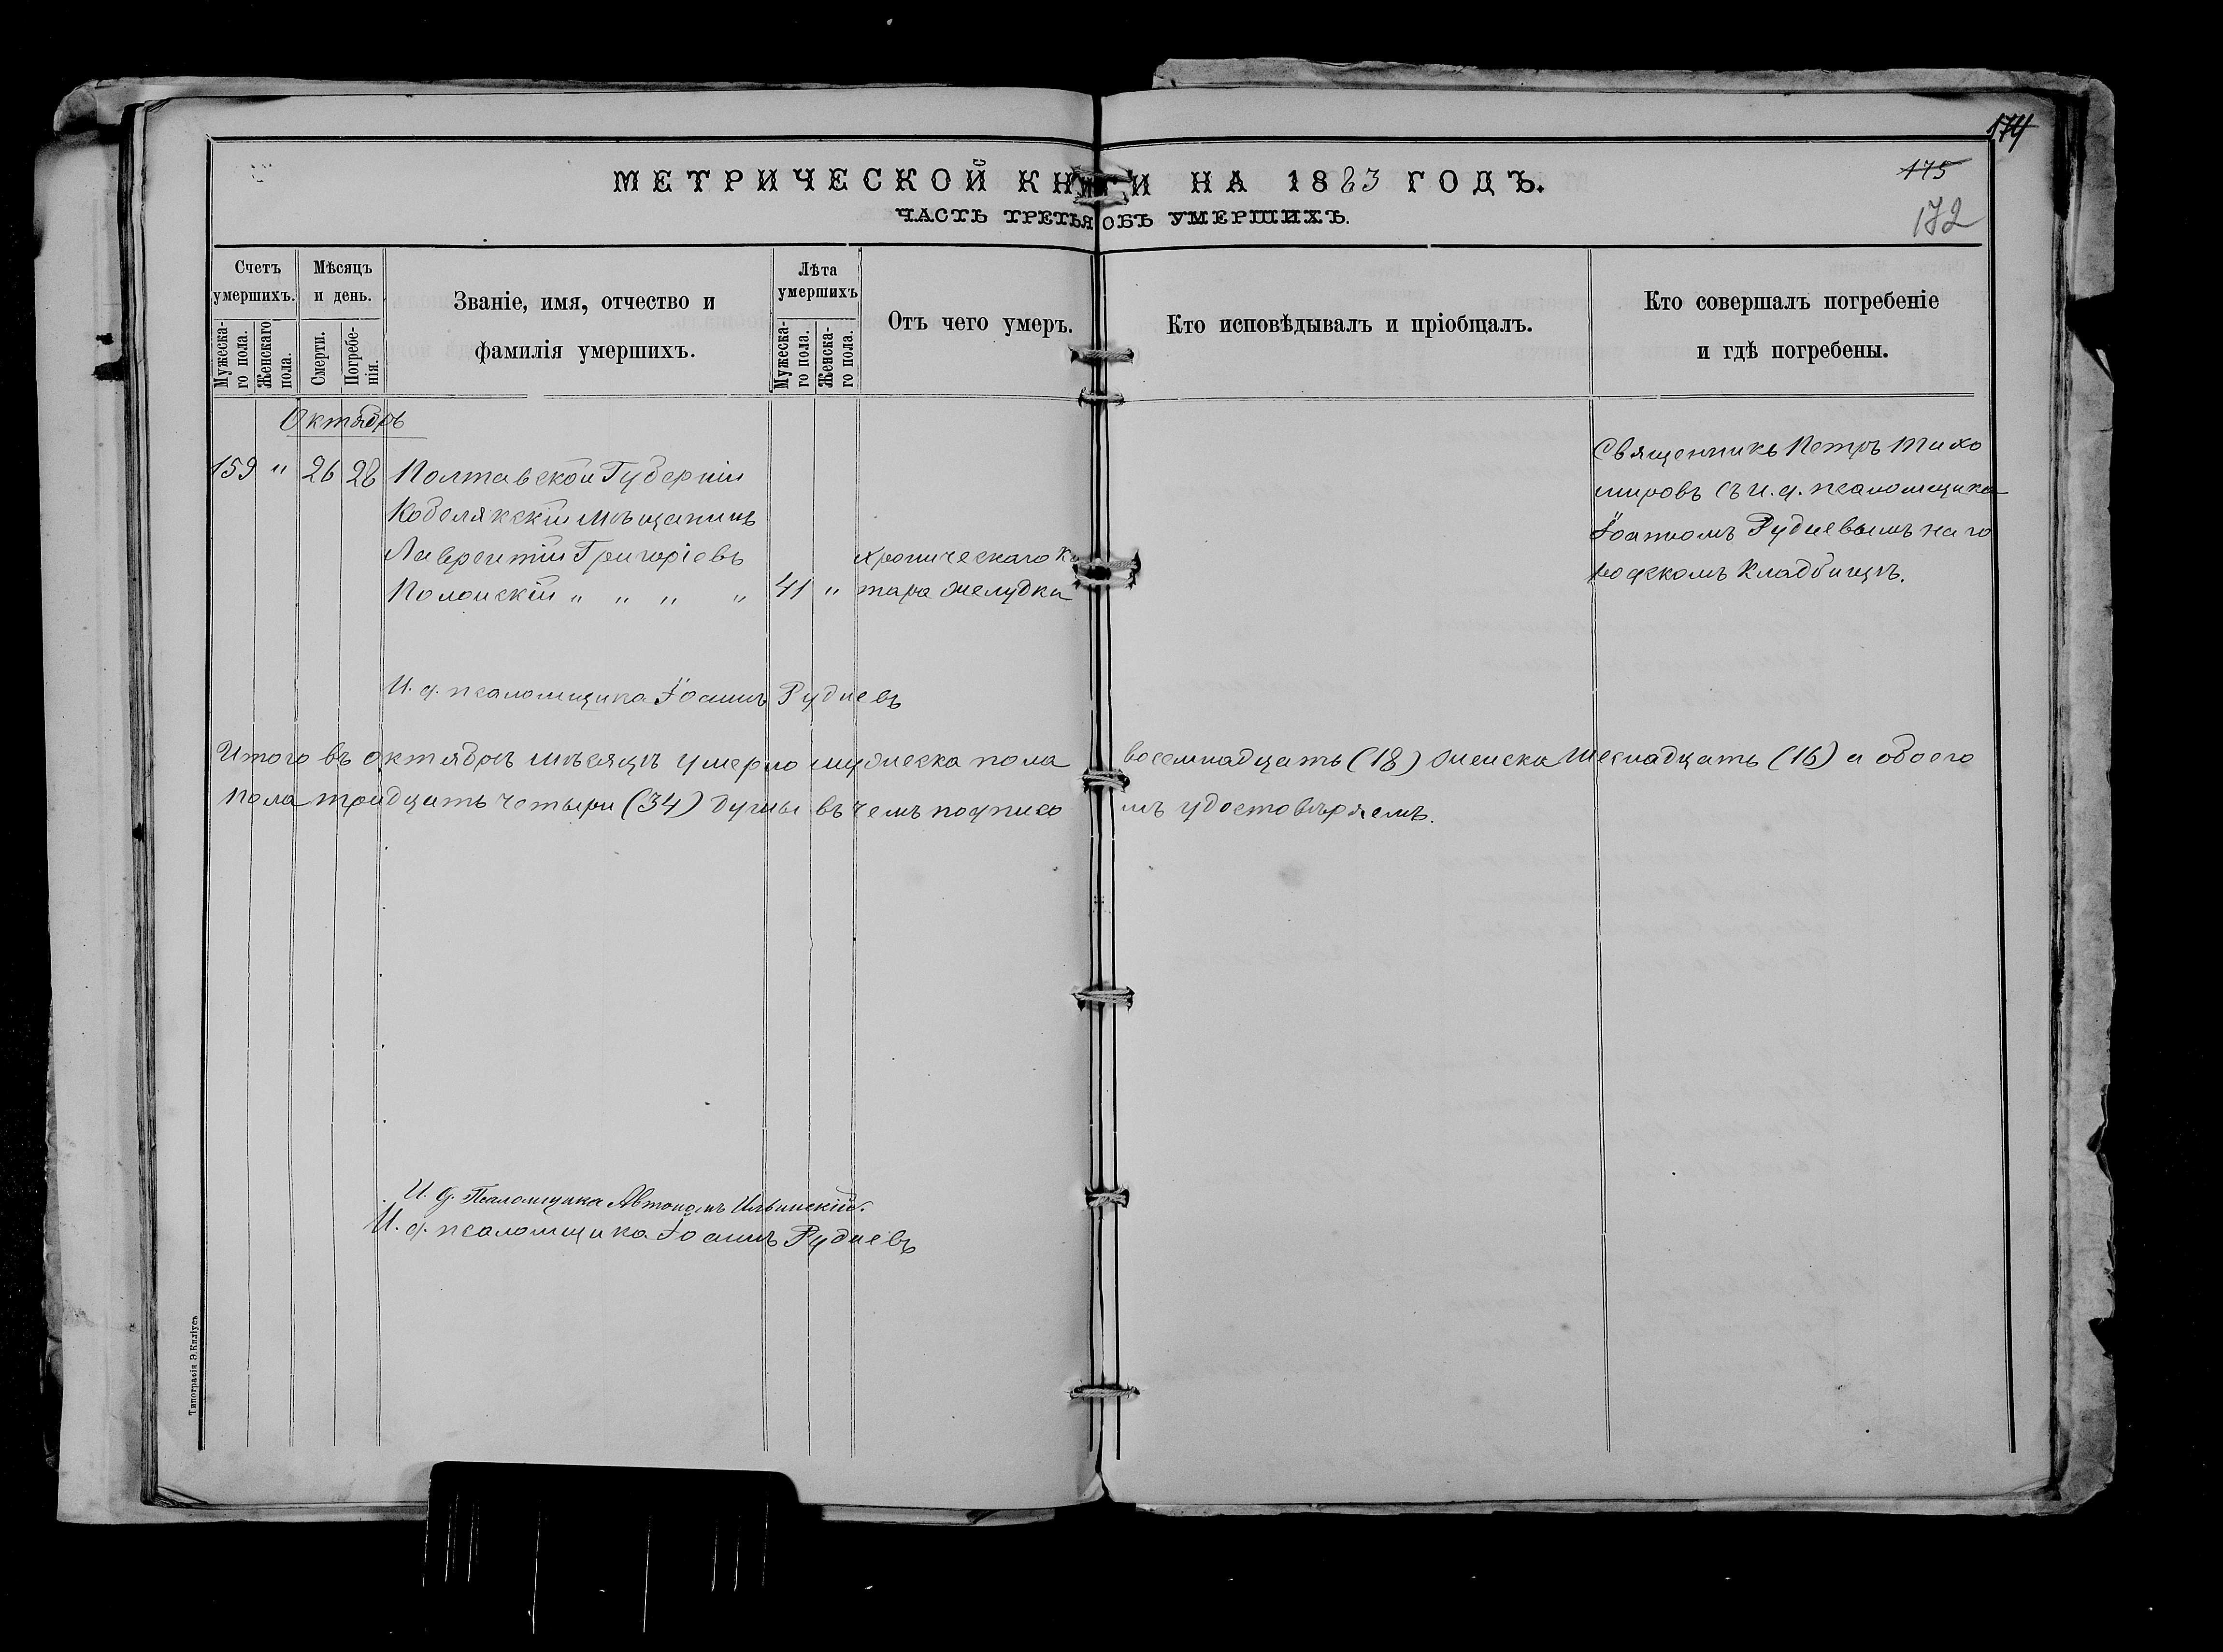 174
175
172
МЕТРИЧЕСКОЙ КНИГИ НА 1883 ГОДЪ.
ЧАСТЬ ТРЕТЬЯ ОБЪ УМЕРШИХЪ.
Счетъ умершихъ.
Мужеска-го пола.
Женскаго пола.
Мѣсяцъ и день.
Смерти.
Погребе-нія.
Званіе, имя, отчество и
фамилія умершихъ.
Лѣта умершихъ
Мужеска-го пола.
Женска-го пола.
Отъ чего умеръ.
Кто исповѣдывалъ и пріобщалъ.
Кто совершалъ погребеніе
и гдѣ погребены.
Октябрь
159 " 26 28 Полтавской Губерніи
Кобелякскій мѣщанинъ
Лаврентій Григоріевъ
Полонскій " " " " 41 "
хроническаго Ка
тара желудка
Священникъ Петръ Тихо
мировъ съ И. д. псаломщика
Іоанномъ Рудневымъ на го
родскомъ Кладбищѣ.
И. д. псаломщика Іоаннъ Рудневъ
Итого въ октябрѣ мѣсяцѣ умерло мужеска пола восемнадцать (18) женска шеснадцать (16) а обоего
пола тридцать четыри (34) души въ чемъ подписо мъ удостовѣряемъ.
И. д. Псаломщика Автономъ Ильинскій.
И. д. псаломщика Іоаннъ Рудневъ
Типографія Э. Киліусъ